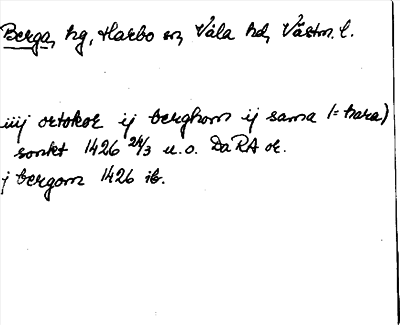 Berga, hg, Harbo sn, Våla hd, Västm. l.
iiij ortokæ ij berghom ij sama (= hara)
sonkt 1426 24/3 u.o. DaRA or.
j bergom 1426 ib.